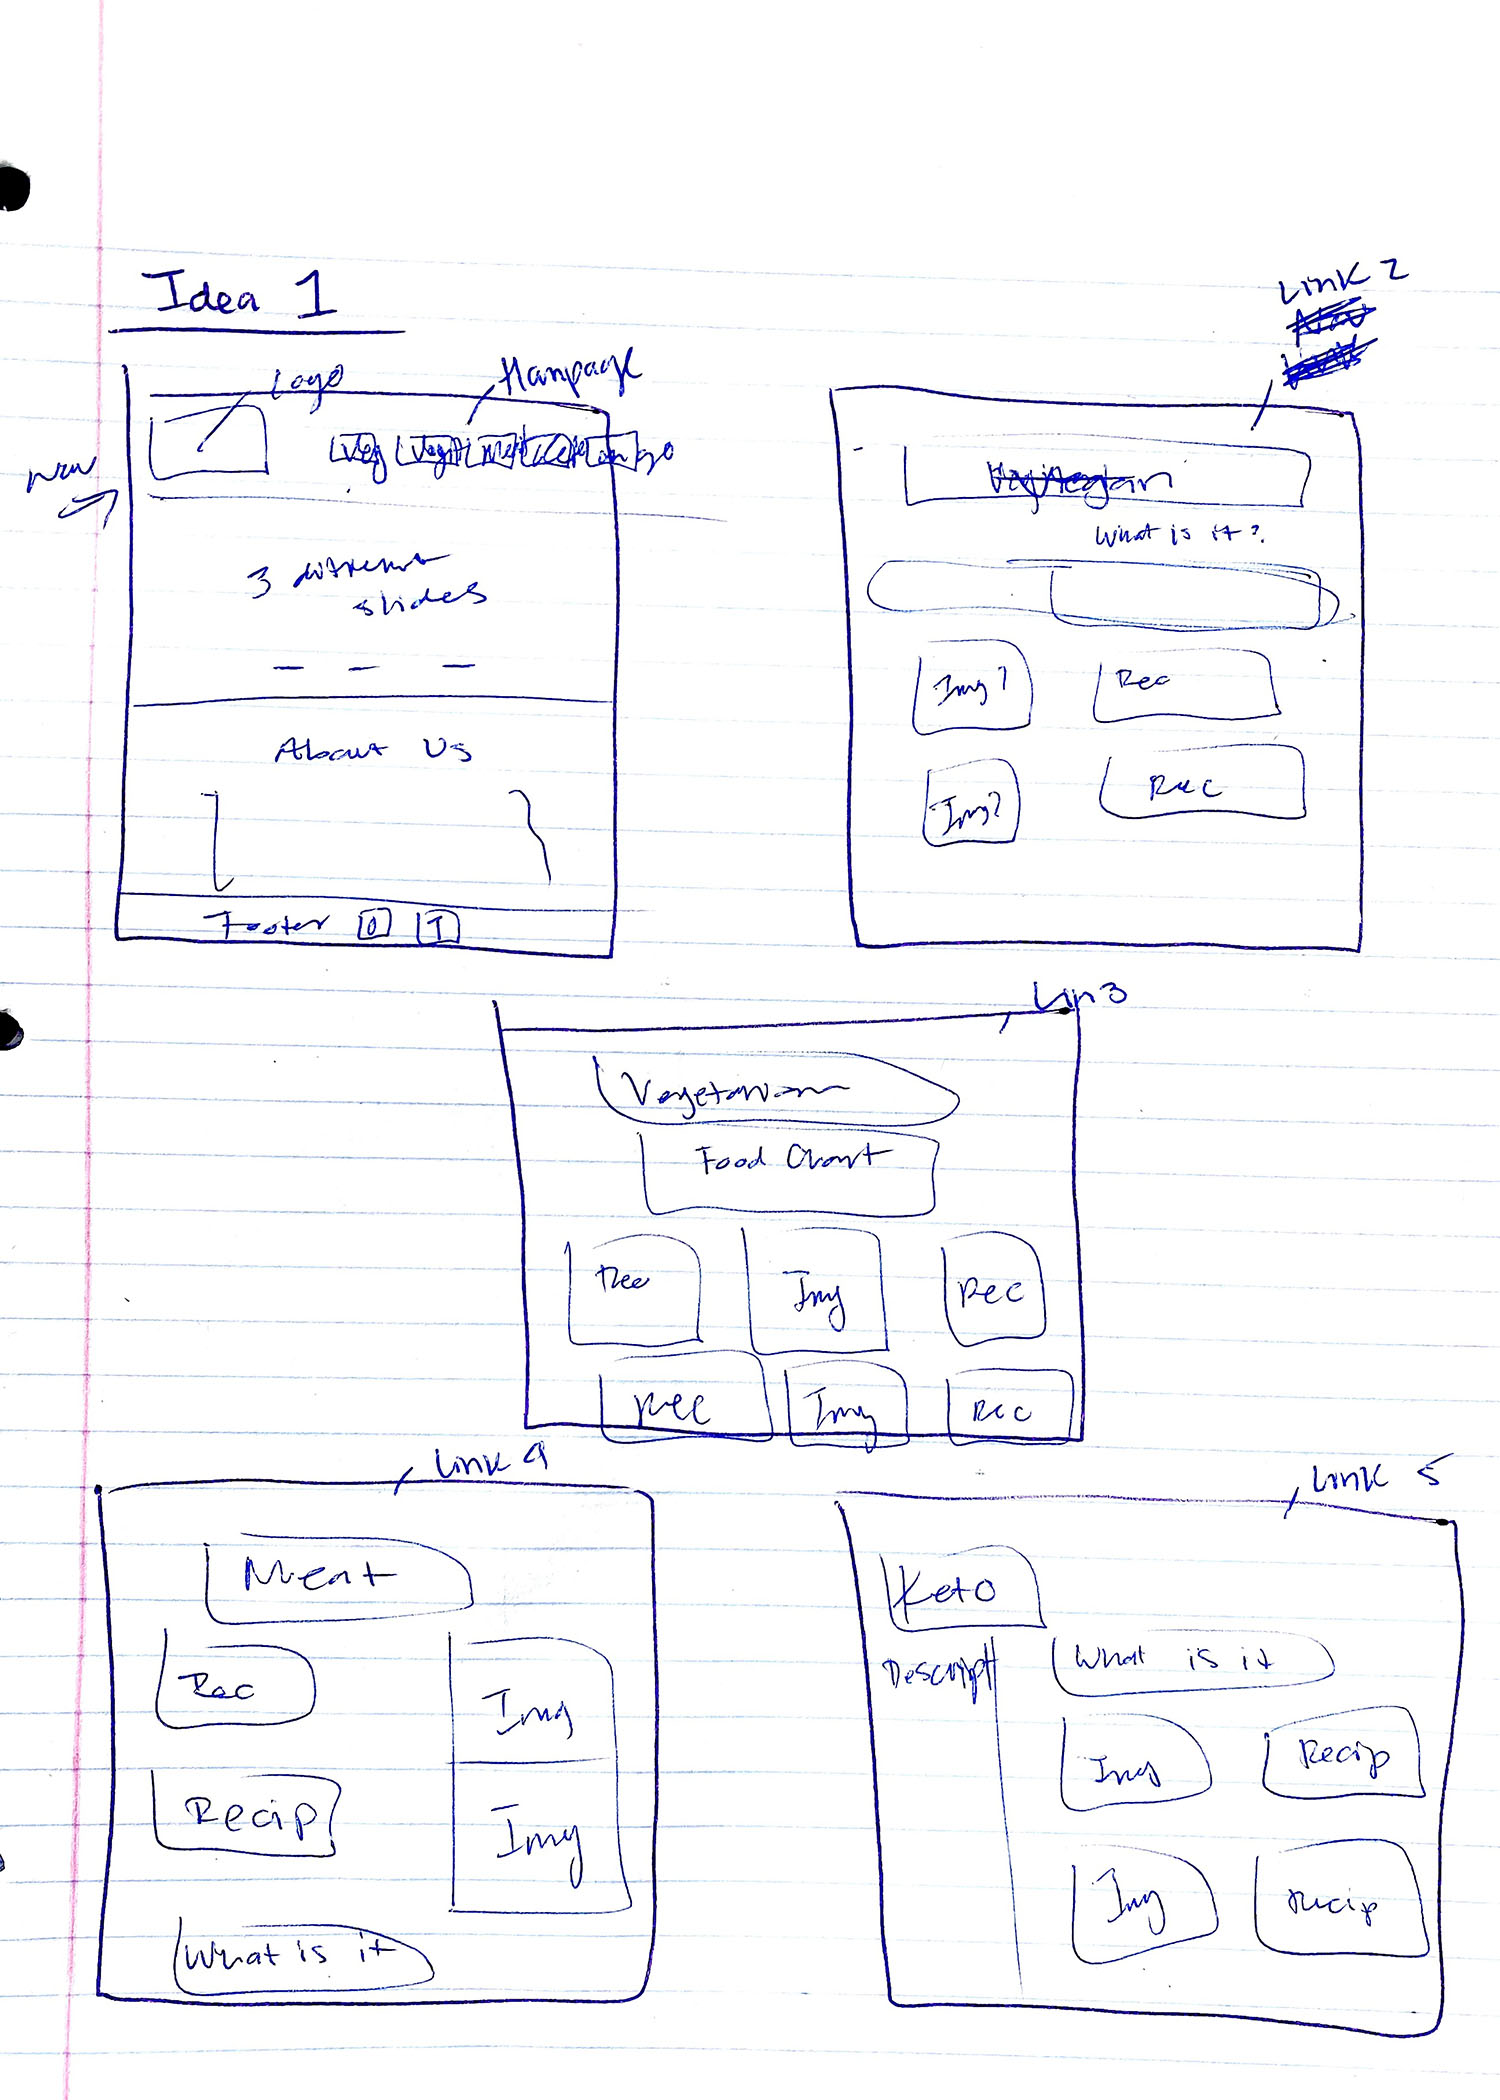 Idea 1
Logo
Hampage
Nav
Veg
3 different
slides
About Us
Footer
Link 2
What is it?
Img?
Rec
Img?
Rec
Lin3
Vegetarian
Food Chart
Rec
Img
Rec
Rec
Img
Rec
Link 4
Meat
Rec
Img
Recip
Img
What is it
Link 5
Keto
Descript
What is it
Img
Recip
Img
Recip